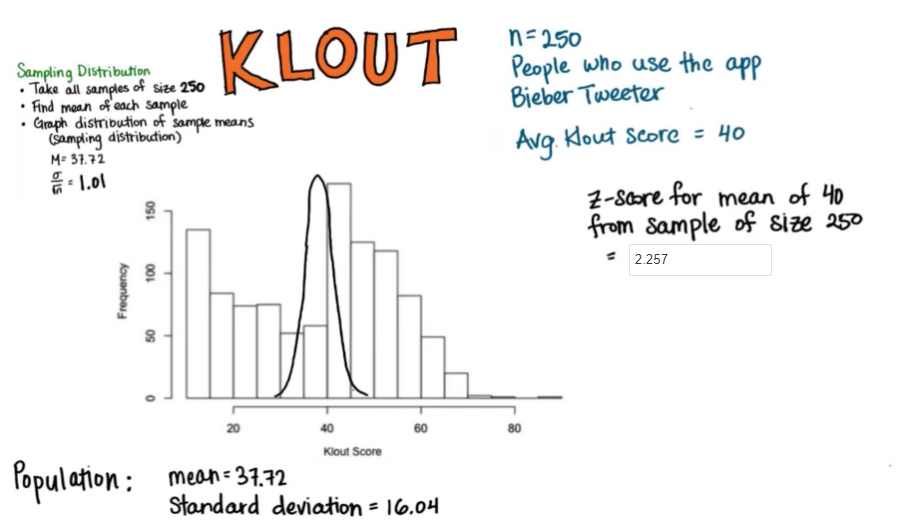 KLOUT
Sampling Distribution
• Take all samples of size 250
• Find mean of each sample
• Graph distribution of sample means
(sampling distribution)
M = 37.72
σ/√n = 1.01
n = 250
People who use the app
Bieber Tweeter
Avg. Klout score = 40
z-score for mean of 40
from sample of size 250
= 2.257
Frequency
150
100
50
0
20 40 60 80
Klout Score
Population: mean = 37.72
Standard deviation = 16.04